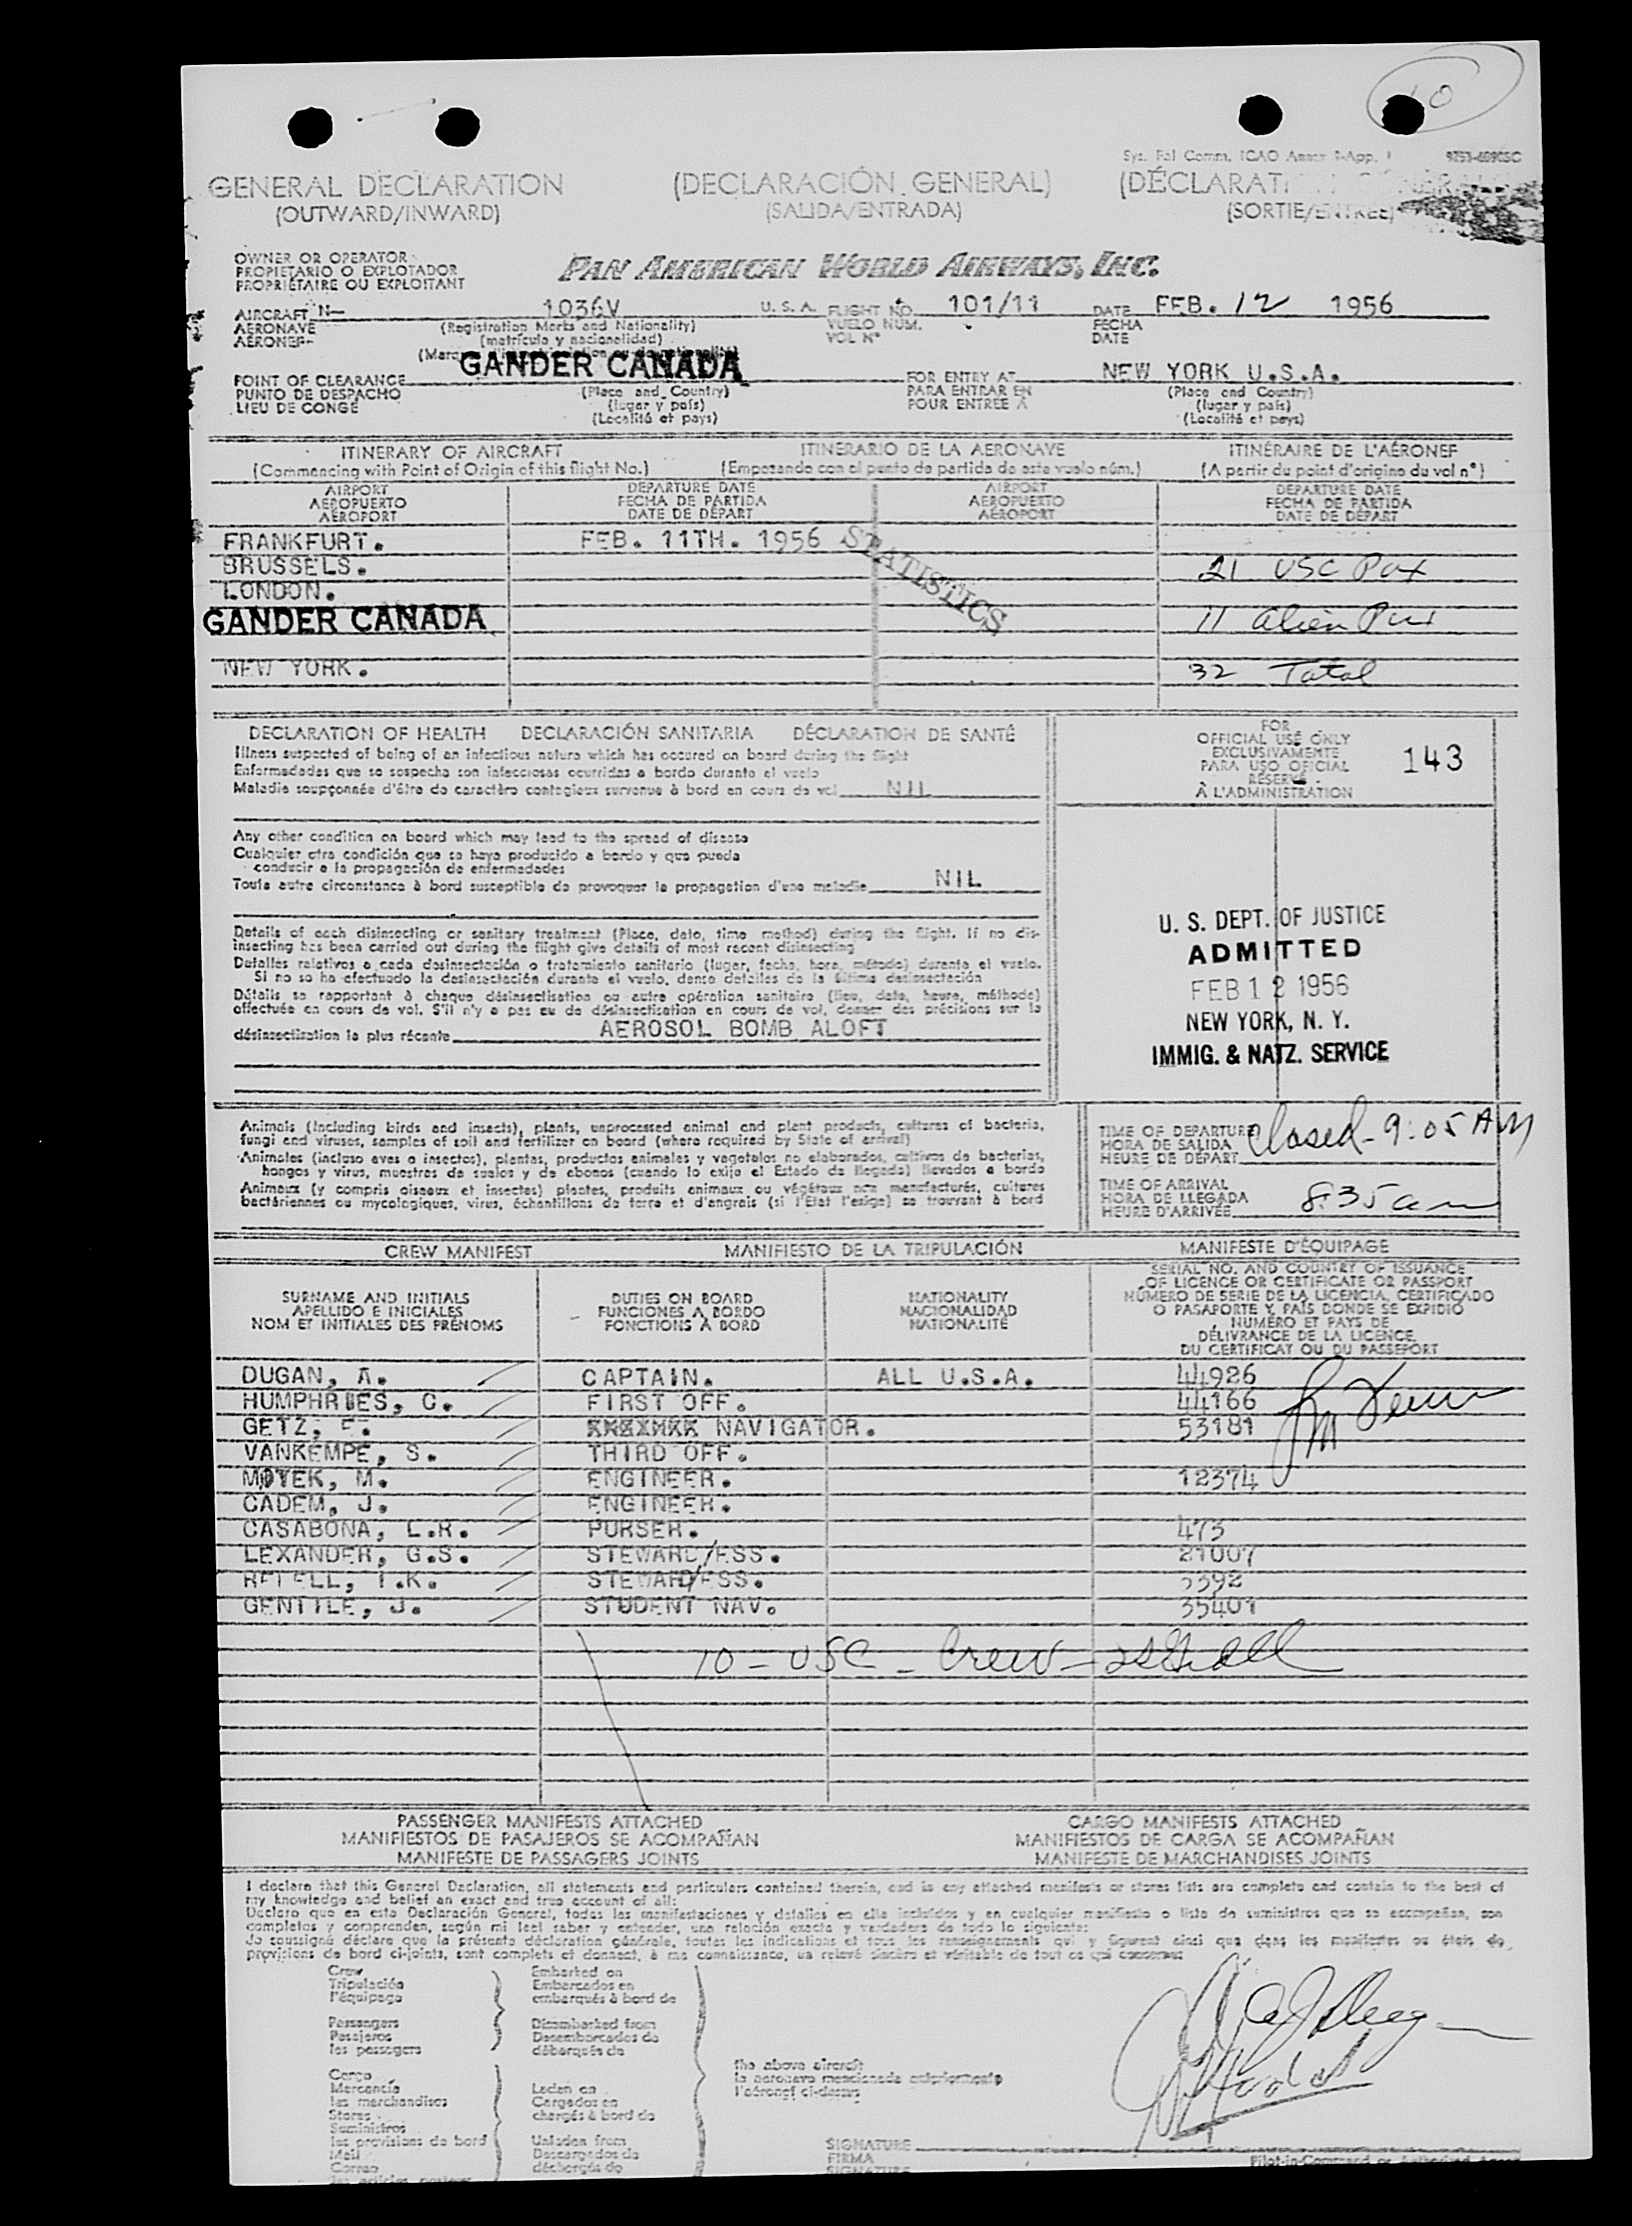 10
Sys. Fal Comm. ICAO Annex 9-App. 1
GENERAL DECLARATION (DECLARACIÓN GENERAL) (DÉCLARATI
(OUTWARD/INWARD) (SALIDA/ENTRADA) (SORTIE/ENTRÉE)
OWNER OR OPERATOR
PROPIETARIO O EXPLOTADOR
PROPRIÉTAIRE OU EXPLOITANT
PAN AMERICAN WORLD AIRWAYS, INC.
AIRCRAFT N— 1036V U. S. A. FLIGHT NO. 101/11 DATE FEB. 12 1956
AERONAVE (Registration Marks and Nationality) VUELO NUM. FECHA
AÉRONEF (matrícula y nacionalidad) VOL Nº DATE
GANDER CANADA
POINT OF CLEARANCE FOR ENTRY AT NEW YORK U.S.A.
PUNTO DE DESPACHO (Place and Country) PARA ENTRAR EN (Place and Country)
LIEU DE CONGÉ (lugar y país) POUR ENTRÉE À (lugar y país)
(Localité et pays) (Localité et pays)
ITINERARY OF AIRCRAFT ITINERARIO DE LA AERONAVE ITINÉRAIRE DE L'AÉRONEF
(Commencing with Point of Origin of this flight No.) (Empezando con el punto de partida de este vuelo núm.) (A partir du point d'origine du vol nº)
AIRPORT DEPARTURE DATE AIRPORT DEPARTURE DATE
AEROPUERTO FECHA DE PARTIDA AEROPUERTO FECHA DE PARTIDA
AÉROPORT DATE DE DÉPART AÉROPORT DATE DE DÉPART
FRANKFURT. FEB. 11TH. 1956
STATISTICS
BRUSSELS. 21 USC Pax
LONDON.
GANDER CANADA 11 alien Pax
NEW YORK. 32 Total
DECLARATION OF HEALTH DECLARACIÓN SANITARIA DÉCLARATION DE SANTÉ
Illness suspected of being of an infectious nature which has occured on board during the flight
Enfermedades que se sospecha son infecciosas ocurridas a bordo durante el vuelo
Maladie soupçonnée d'être de caractère contagieux survenue à bord en cours de vol NIL
FOR
OFFICIAL USE ONLY
EXCLUSIVAMENTE
PARA USO OFICIAL
RÉSERVÉ
À L'ADMINISTRATION
143
Any other condition on board which may lead to the spread of disease
Cualquier otra condición que se haya producido a bordo y que pueda
conducir a la propagación de enfermedades
Toute autre circonstance à bord susceptible de provoquer la propagation d'une maladie NIL
Details of each disinsecting or sanitary treatment (Place, date, time method) during the flight. If no dis-
insecting has been carried out during the flight give details of most recent disinsecting
Detalles relativos a cada desinsectación o tratamiento sanitario (lugar, fecha, hora, método) durante el vuelo.
Si no se ha efectuado la desinsectación durante el vuelo, dense detalles de la última desinsectación
Détails se rapportant à chaque désinsectisation ou autre opération sanitaire (lieu, date, heure, méthode)
effectuée en cours de vol. S'il n'y a pas eu de désinsectisation en cours de vol, donner des précisions sur la
désinsectisation la plus récente AEROSOL BOMB ALOFT
U. S. DEPT. OF JUSTICE
ADMITTED
FEB 12 1956
NEW YORK, N. Y.
IMMIG. & NATZ. SERVICE
Animals (including birds and insects), plants, unprocessed animal and plant products, cultures of bacteria,
fungi and viruses, samples of soil and fertilizer on board (where required by State of arrival)
Animales (incluso aves o insectos), plantas, productos animales y vegetales no elaborados, cultivos de bacterias,
hongos y virus, muestras de suelos y de abonos (cuando lo exija el Estado de llegada) llevados a bordo
Animaux (y compris oiseaux et insectes) plantes, produits animaux ou végétaux non manufacturés, cultures
bactériennes ou mycologiques, virus, échantillons de terre et d'engrais (si l'État l'exige) se trouvant à bord
TIME OF DEPARTURE closed - 9:05 AM
HORA DE SALIDA
HEURE DE DÉPART
TIME OF ARRIVAL
HORA DE LLEGADA 8:35 am
HEURE D'ARRIVÉE
CREW MANIFEST MANIFIESTO DE LA TRIPULACIÓN MANIFESTE D'ÉQUIPAGE
SURNAME AND INITIALS
APELLIDO E INICIALES
NOM ET INITIALES DES PRÉNOMS
DUTIES ON BOARD
FUNCIONES A BORDO
FONCTIONS À BORD
NATIONALITY
NACIONALIDAD
NATIONALITÉ
SERIAL NO. AND COUNTRY OF ISSUANCE
OF LICENCE OR CERTIFICATE OR PASSPORT
NÚMERO DE SERIE DE LA LICENCIA, CERTIFICADO
O PASAPORTE Y PAÍS DONDE SE EXPIDIÓ
NUMÉRO ET PAYS DE
DÉLIVRANCE DE LA LICENCE
DU CERTIFICAT OU DU PASSEPORT
DUGAN, A. CAPTAIN. ALL U.S.A. 44926
HUMPHRIES, C. FIRST OFF. 44166
GETZ, F. NAVIGATOR. 53181
VANKEMPE, S. THIRD OFF.
MOTEK, M. ENGINEER. 12374
CADEM, J. ENGINEER.
CASABONA, L.R. PURSER. 473
LEXANDER, G.S. STEWARD/ESS. 21007
STEWARD/ESS. 5392
GENTILE, J. STUDENT NAV. 35401
10 - USC - Crew -
PASSENGER MANIFESTS ATTACHED CARGO MANIFESTS ATTACHED
MANIFIESTOS DE PASAJEROS SE ACOMPAÑAN MANIFIESTOS DE CARGA SE ACOMPAÑAN
MANIFESTE DE PASSAGERS JOINTS MANIFESTE DE MARCHANDISES JOINTS
I declare that this General Declaration, all statements and particulars contained therein, and in any attached manifests or stores lists are complete and contain to the best of
my knowledge and belief an exact and true account of all:
Declaro que en esta Declaración General, todas las manifestaciones y detalles en ella incluídos y en cualquier manifiesto o lista de suministros que se acompañan, son
completos y comprenden, según mi leal saber y entender, una relación exacta y verdadera de todo lo siguiente:
Je soussigné déclare que la présente déclaration générale, toutes les indications et tous les renseignements qui y figurent ainsi que dans les manifestes ou états de
provisions de bord ci-joints, sont complets et donnent, à ma connaissance, un relevé sincère et véritable de tout ce qui concerne:
Crew Embarked on
Tripulación Embarcados en
l'équipage embarqués à bord de
Passengers Disembarked from
Pasajeros Desembarcados de
les passagers débarqués de
the above aircraft
la aeronave mencionada anteriormente
l'aéronef ci-dessus
Cargo
Mercancía Laden on
les marchandises Cargados en
Stores chargés à bord de
Suministros
les provisions de bord Unladen from
Mail Descargados de
Correo déchargés de
SIGNATURE
FIRMA
SIGNATURE
Pilot-in-Command or Authorized Agent